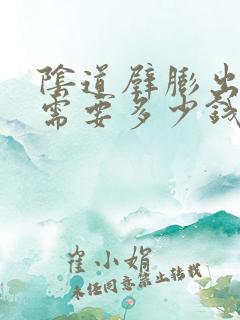 陰道壁膨出
需要多少錢
崔小娟
未经同意禁止转载